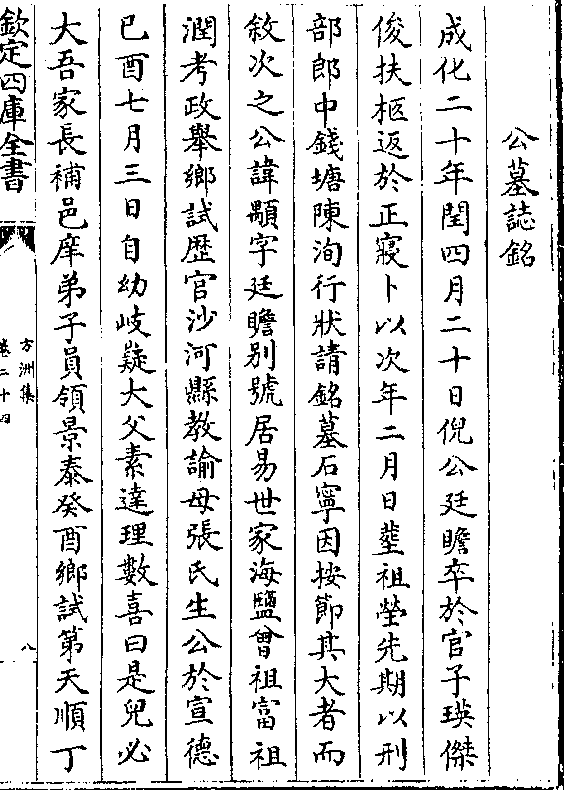 公墓誌銘
成化二十年閏四月二十日倪公廷瞻卒於官子瑛傑
俊扶柩返於正寢卜以次年二月日塟祖塋先期以刑
部郎中錢塘陳洵行狀請銘墓石寧因按節其大者而
敘次之公諱顒字廷瞻别號居易世家海鹽曾祖富祖
潤考政舉鄉試歴官沙河縣教諭母張氏生公於宣德
已酉七月三日自幼岐嶷大父素達理數喜曰是兒必
大吾家長補邑庠弟子員領景泰癸酉鄉試第天順丁
欽定四庫全書
方洲集
卷二十四
八